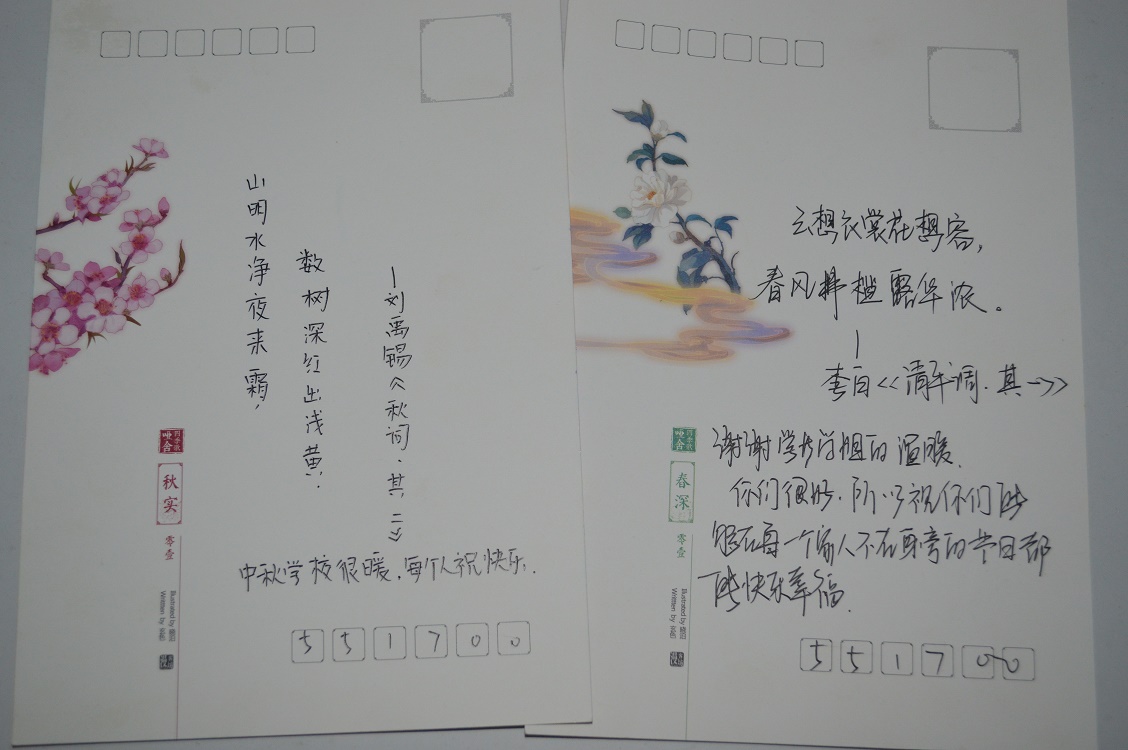 山明水净夜来霜,
数树深红出浅黄.
—刘禹锡《秋词、其二》
中秋学校很暖,每个人祝快乐.
哑舍
四季歌
秋实
零壹
Illustrated by
Written by
551700
云想衣裳花想容,
春风拂槛露华浓。
—
李白<<清平调.其一>>
谢谢学长学姐的温暖.
你们很好.所以祝你们能
够在每一个家人不在身旁的节日都
能快乐幸福.
哑舍
四季歌
春深
零壹
Illustrated by
Written by
551700